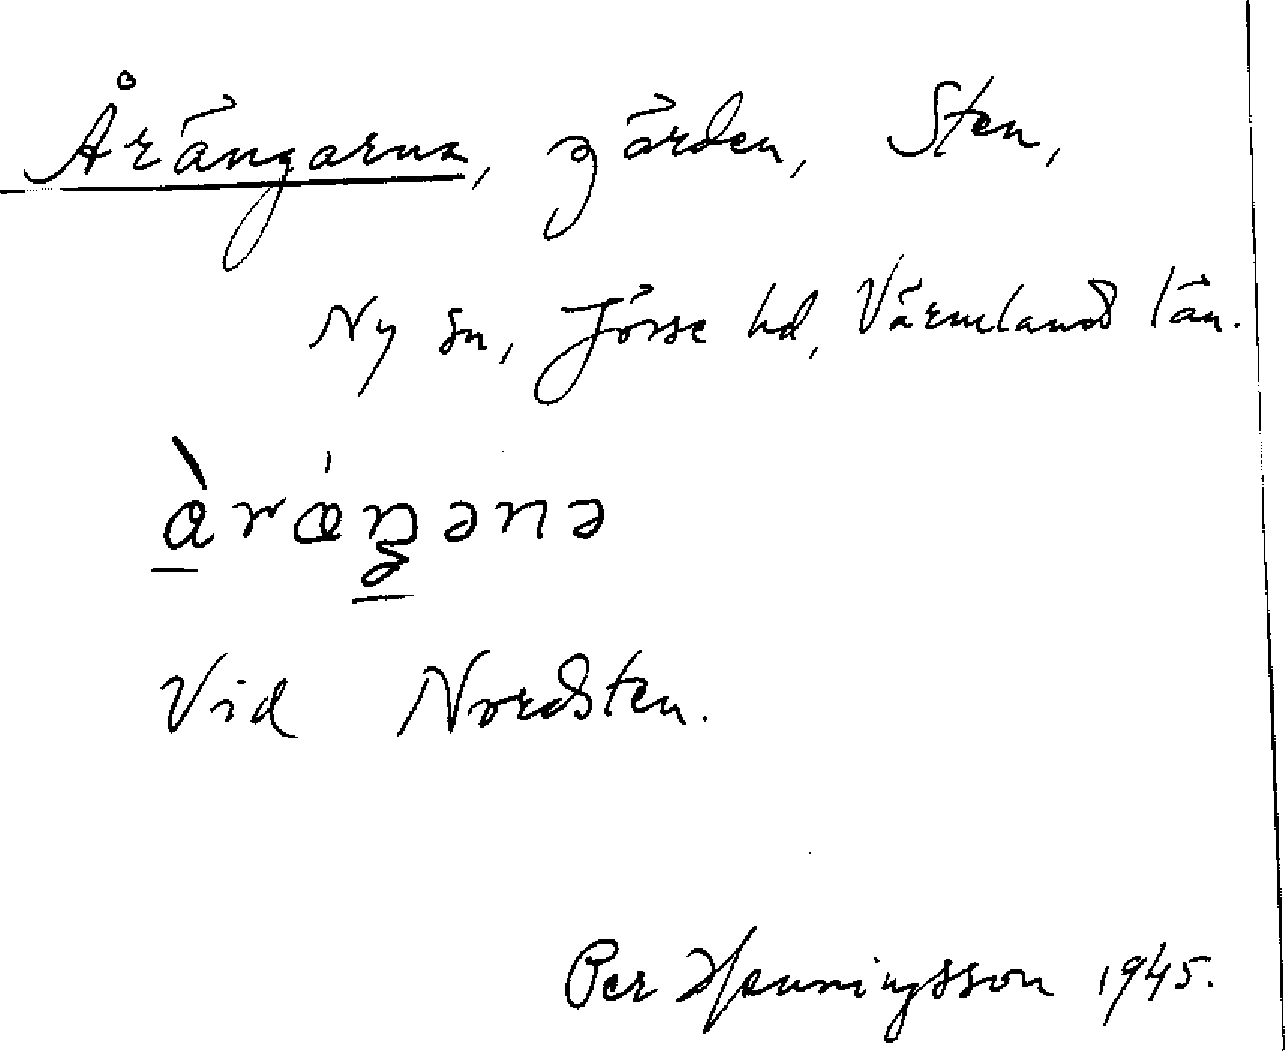 Årängarna, gärden, Sten,
Ny sn, Jösse hd, Värmlands län.
àrǽŋənə
Vid Nordsten.
Per Henningsson 1945.